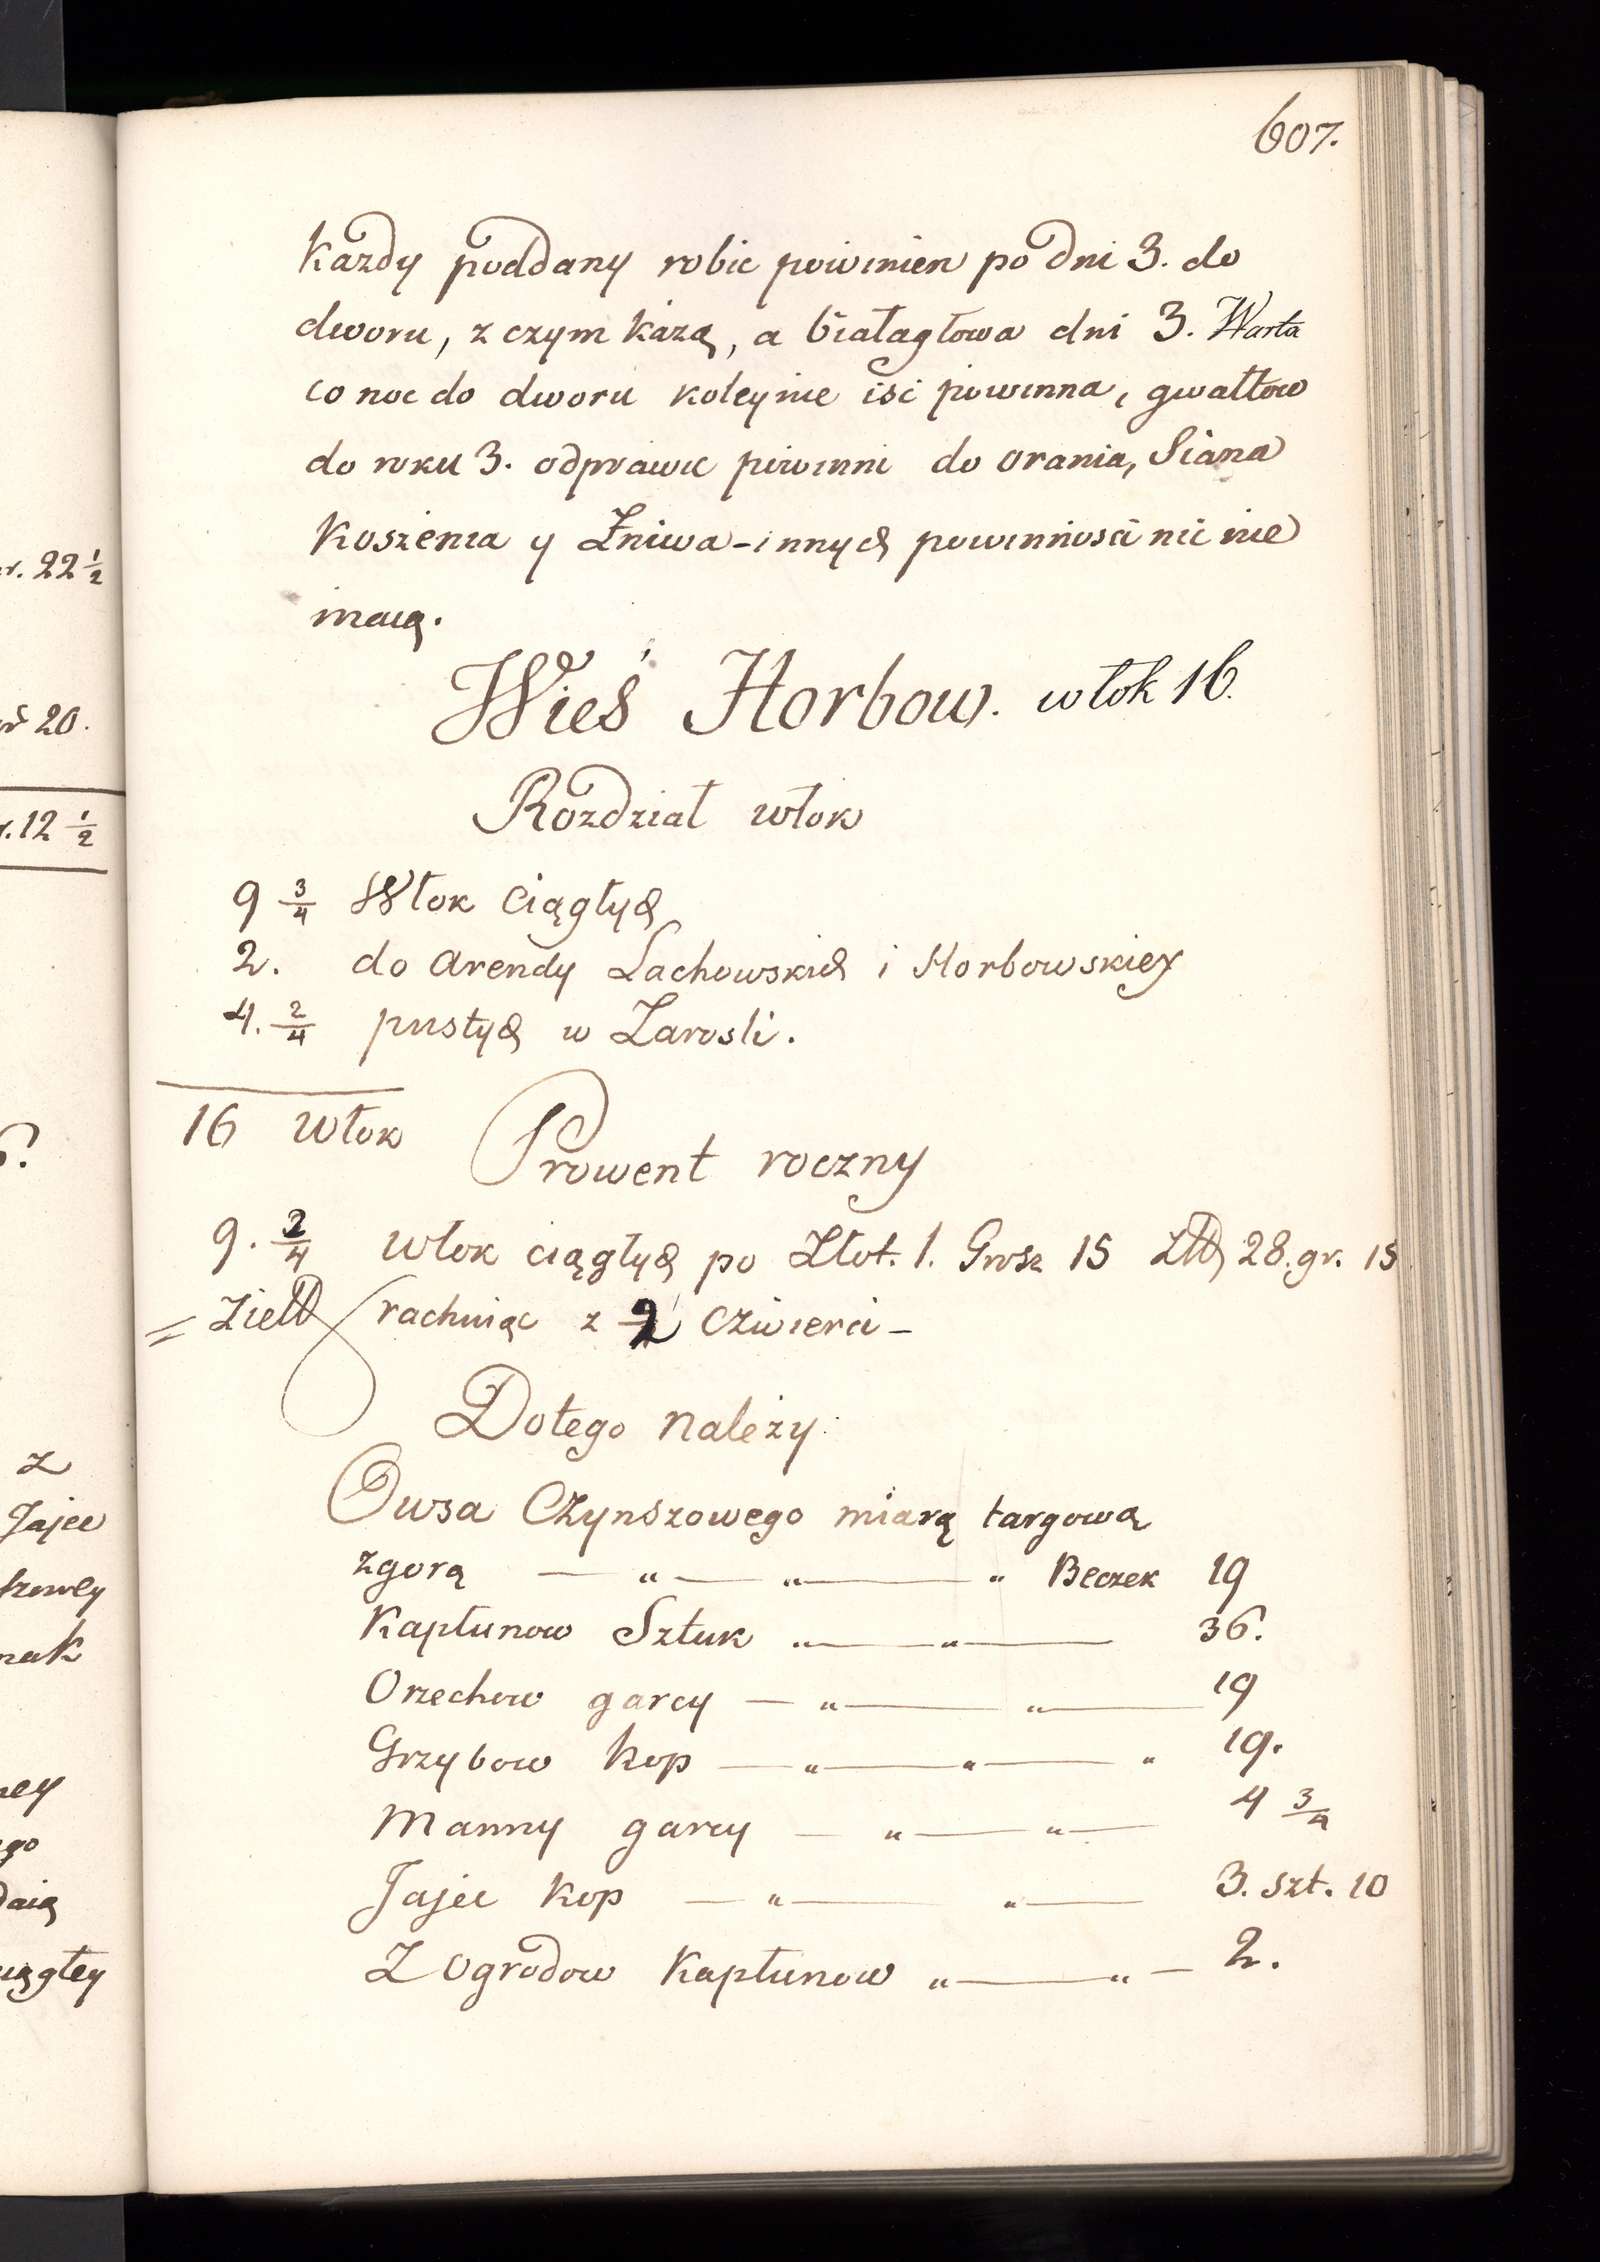 607.
Kazdy poddany robic powinien po dni 3. do
dworu, z czym każą, a białagłowa dni 3. Warta
co noc do dworu koleynie iść powinna, gwałtow
do roku 3. odprawić powinni do orania, Siana
Koszenia y Żniwa - innych powinności nic nie
maią.
Wieś Horbow. włok 16.
Rozdział włok
9 3/4 Włok ciągłych
2. do arendy Lachowskich i Horbowskiey
4. 2/4 pustych w Zarosli.
16 Włok
Prowent roczny
9. 2/4 włok ciągłych po Złot. 1. Grosz 15 Złł 28. gr. 15
= Zielł rachuiąc z 2 Czwierci -
Do tego należy:
Owsa Czynszowego miarą targową
zgorą — „ — „ — „ Beczek 19
Kapłunow Sztuk „ — „ — 36.
Orzechow garcy — „ — „ — 19
Grzybow kop — „ — „ — „ 19.
Manny garcy — „ — „ — 4 3/4
Jajec Kop — „ — „ — 3. szt. 10
Z Ogrodow Kapłunow „ — „ — 2.
r. 22 1/2
20.
r. 12 1/2
z
Jajec